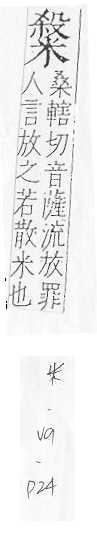 𥻦
桑轄切音薩流放罪
人言放之若散米也
米
-
v9
-
p24